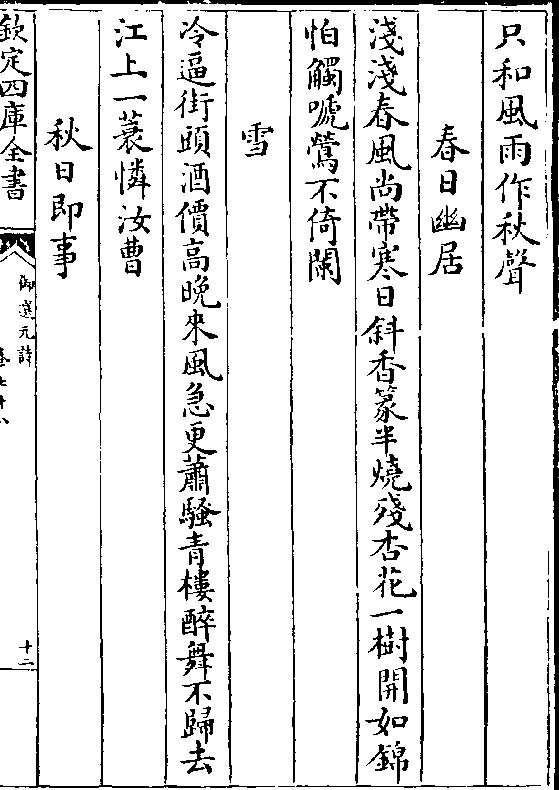 只和風雨作秋聲
春日幽居
淺淺春風尚帶寒日斜香篆半燒殘杏花一樹開如錦
怕觸嗁鶯不倚闌
雪
冷逼街頭酒價高晚來風急更蕭騷青樓醉舞不歸去
江上一蓑憐汝曹
秋日即事
欽定四庫全書
御選元詩
十二